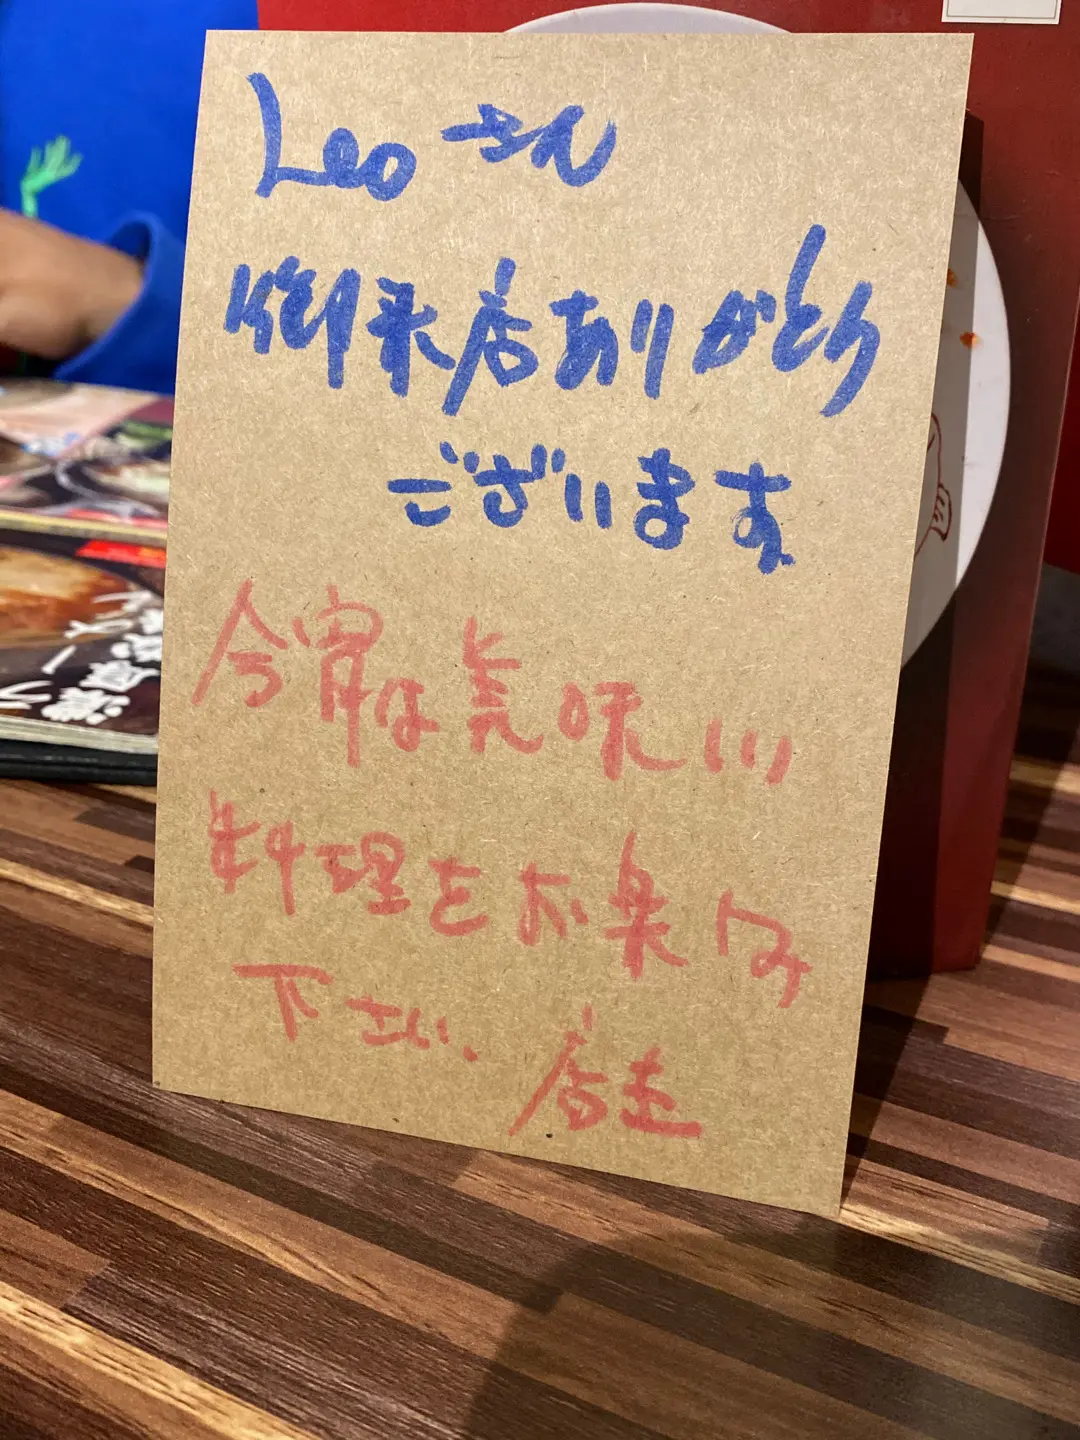 Leo さん
御来店ありがとう
ございます
今宵は美味しい
料理をお楽しみ
下さい、
店主